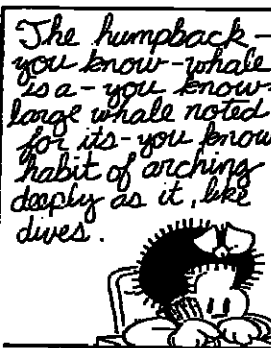 The humpback -
you know - whale
is a - you know -
large whale noted
for its - you know
habit of arching
deeply as it, like
dives.